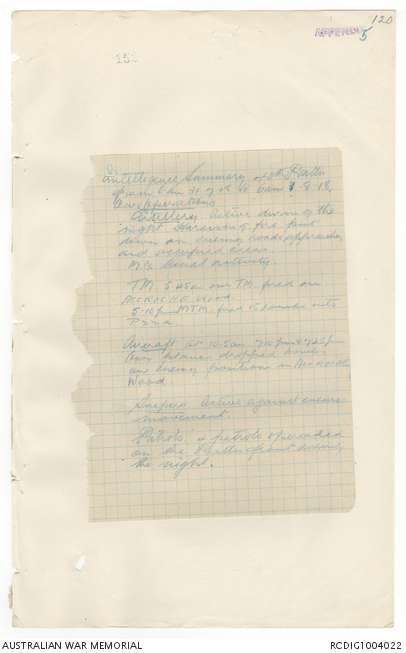 120
APPENDIX
5
152
Intelligence Summary Battn
from 6am 31.7.18 to 6am 1-8-18
Own operations
Artillery Active during the
night. Harassing fire put
down on enemy roads, approaches
and occupied areas
M.G. usual activity.
TM 5.45am our TM fired on
wood.
5-10pm MTM fired 15 rounds into
Aircraft at 10.5am
our planes dropped bombs
on enemy positions in
Wood
Snipers Active against enemy
movement.
Patrols 4 patrols operated
on the Battn front during
the night.
AUSTRALIAN WAR MEMORIAL
RCDIG1004022